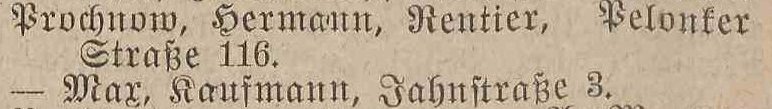 Prochnow, Hermann, Rentier, Pelonker
Straße 116.
— Max, Kaufmann, Jahnstraße 3.